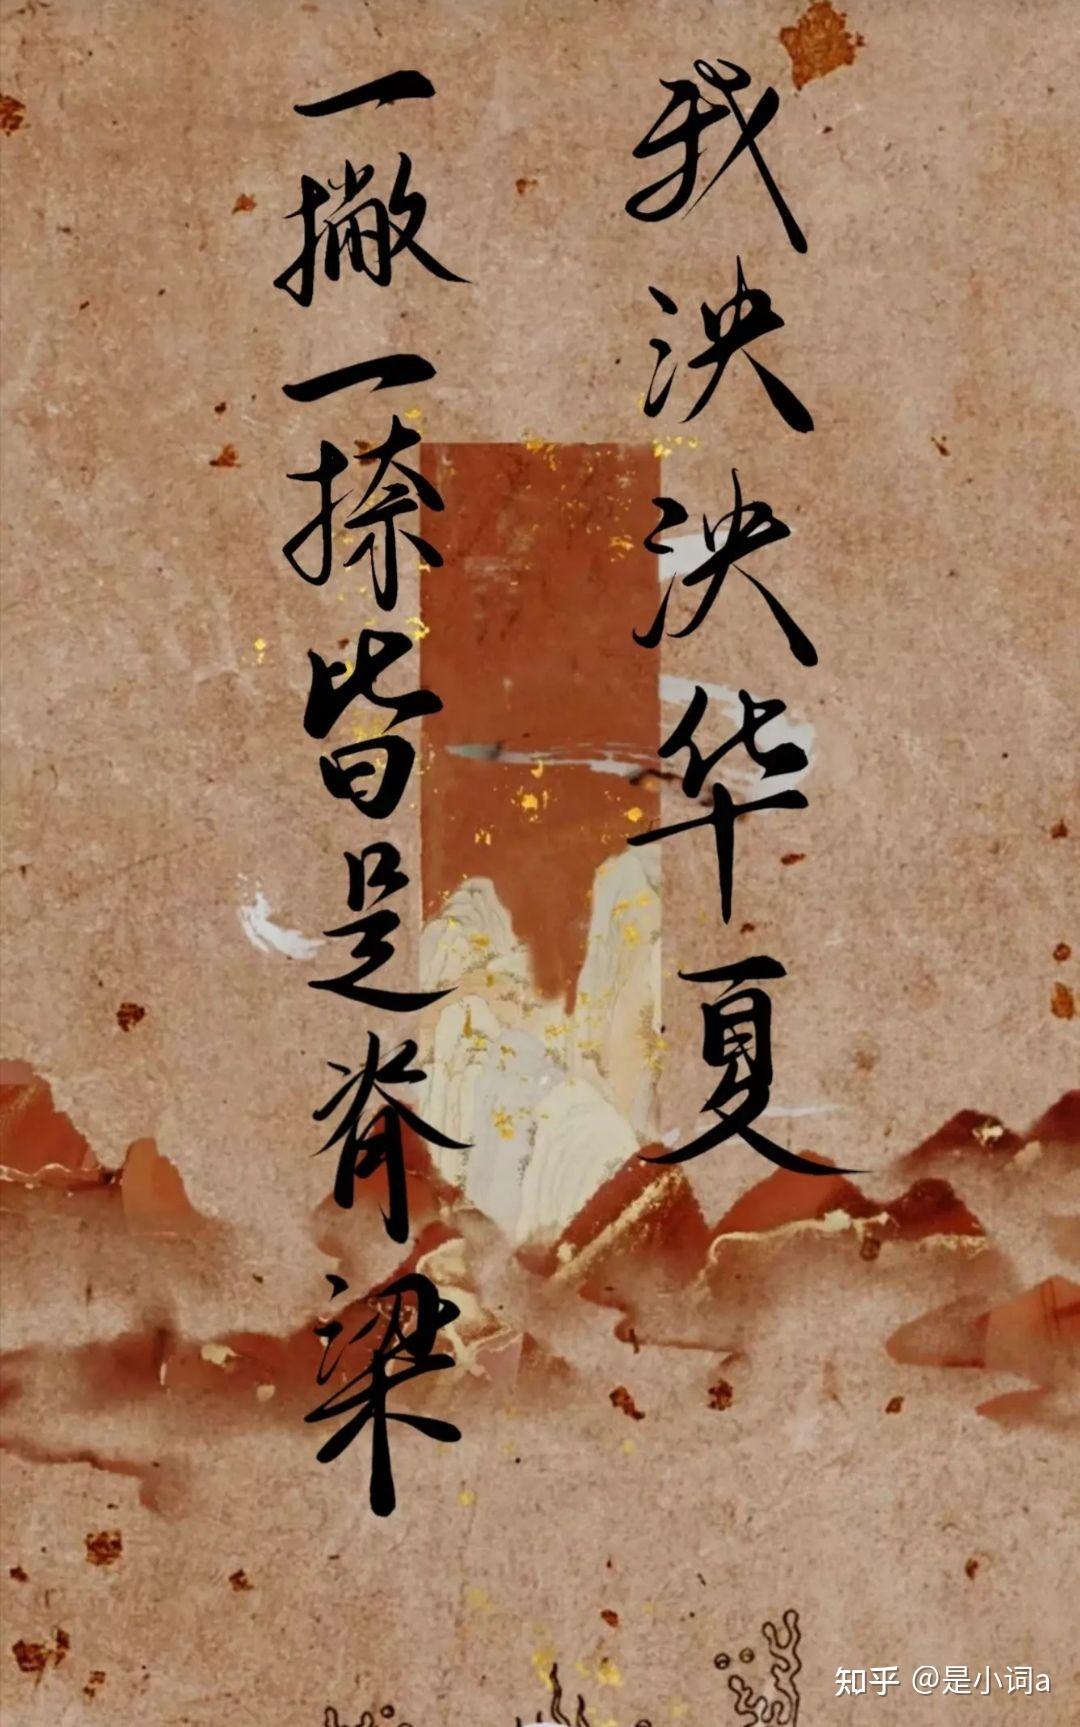 我泱泱华夏
一撇一捺皆是脊梁
知乎 @是小词a